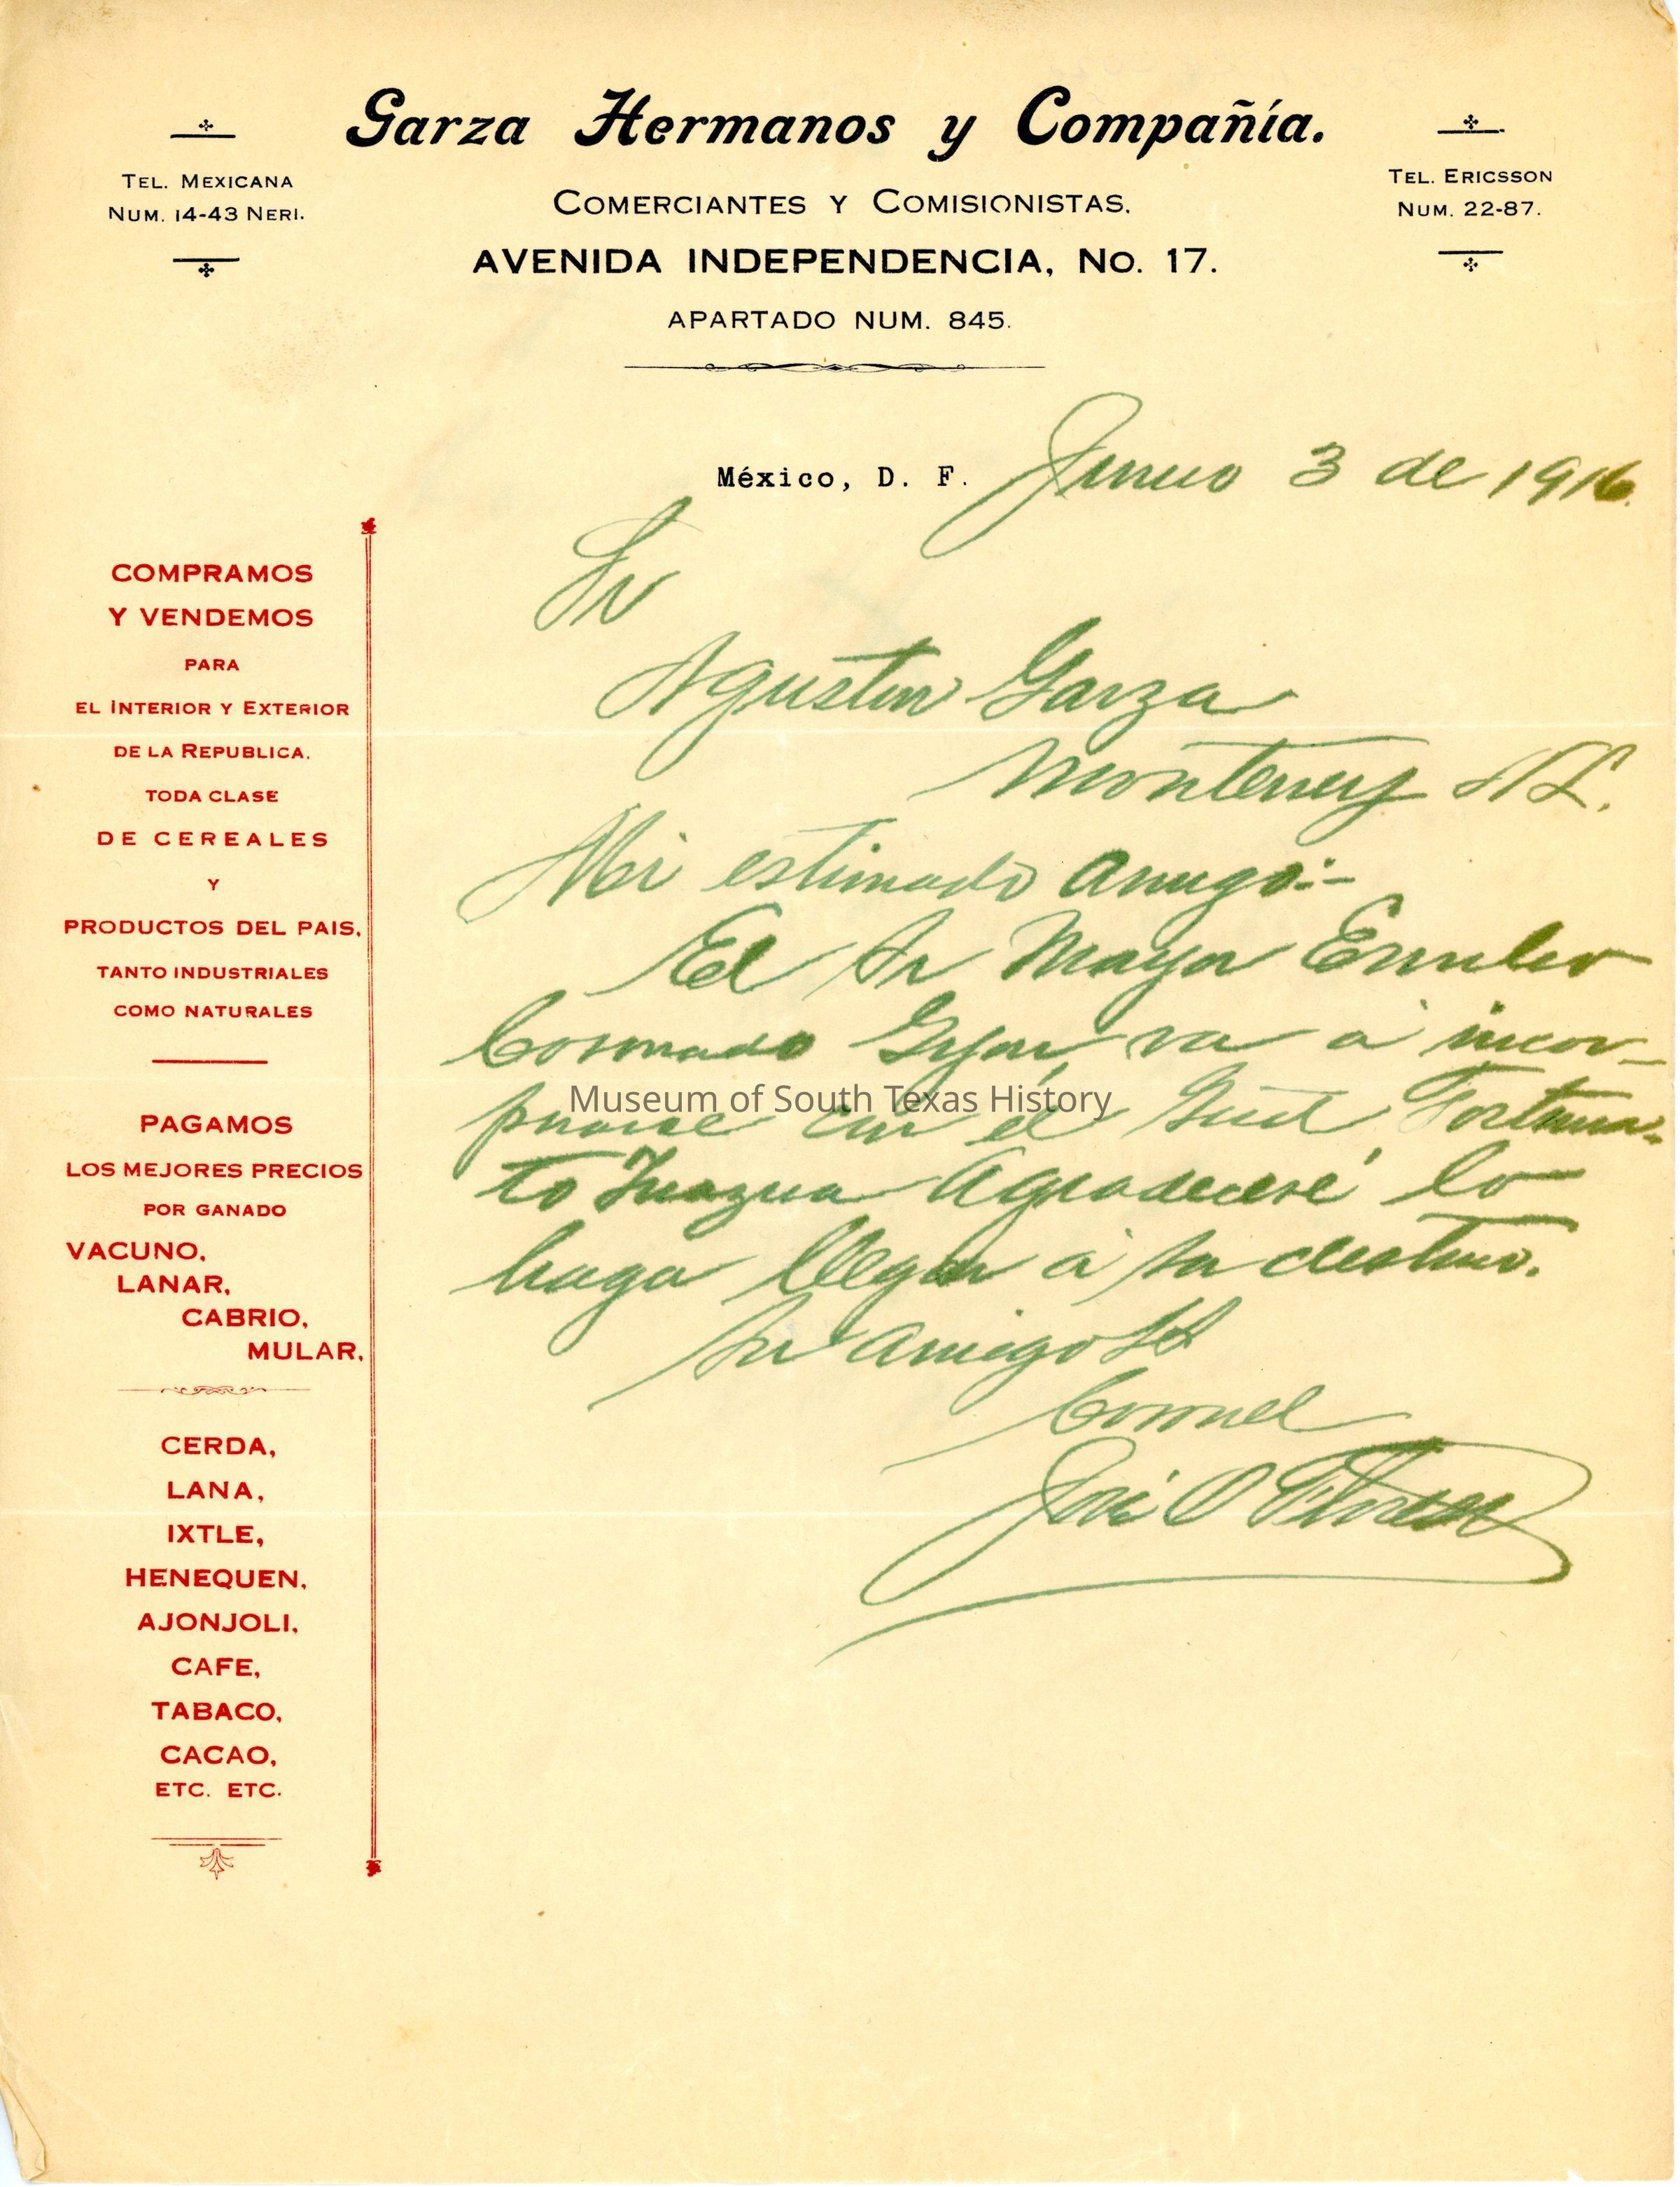 Garza Hermanos y Compañía.
TEL. MEXICANA
NUM. 14-43 NERI.
COMERCIANTES Y COMISIONISTAS.
TEL. ERICSSON
NUM. 22-87.
AVENIDA INDEPENDENCIA, No. 17.
APARTADO NUM. 845.
México, D. F. Junio 3 de 1916.
COMPRAMOS
Y VENDEMOS
PARA
EL INTERIOR Y EXTERIOR
DE LA REPUBLICA.
TODA CLASE
DE CEREALES
Y
PRODUCTOS DEL PAIS,
TANTO INDUSTRIALES
COMO NATURALES
PAGAMOS
LOS MEJORES PRECIOS
POR GANADO
VACUNO,
LANAR,
CABRIO,
MULAR,
CERDA,
LANA,
IXTLE,
HENEQUEN,
AJONJOLI,
CAFE,
TABACO,
CACAO,
ETC. ETC.
Sr
Agustin Garza
Monterrey N L.
Mi estimado amigo:-
El Sr Mayor
Coronado va a incor-
porarse con el Gral Fortuna-
to Zuazua Agradeceré lo
haga llegar a su destino.
Su amigo
Coronel
José O Flores
Museum of South Texas History